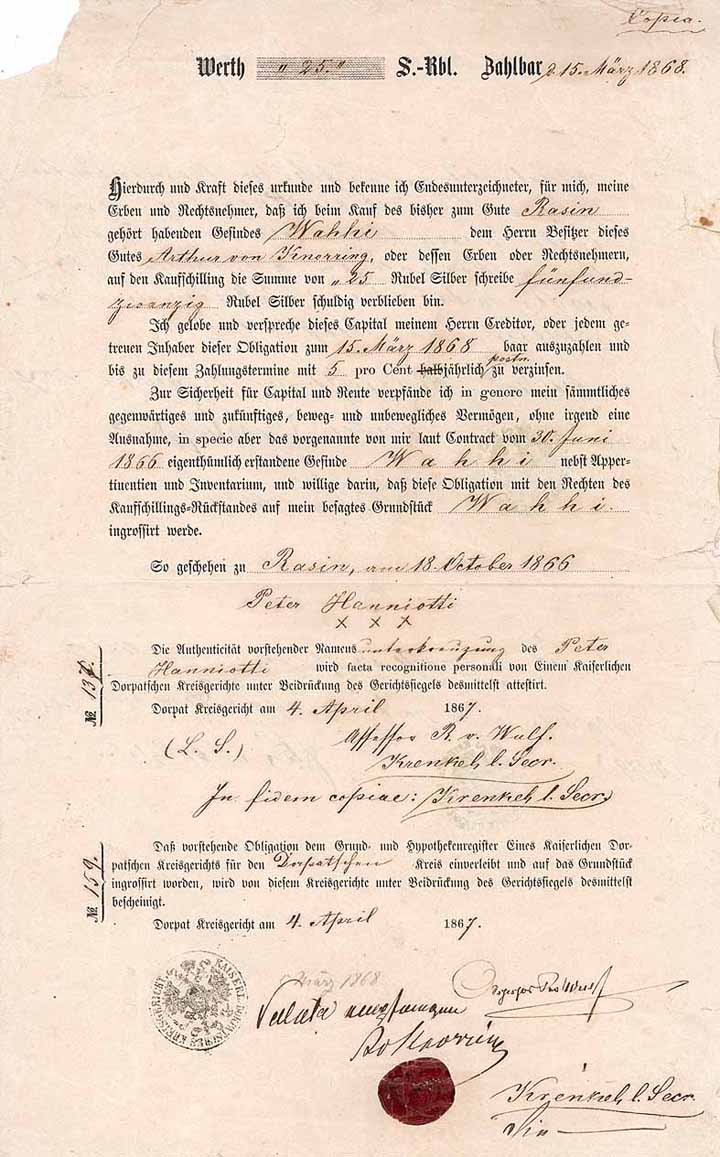 Copia.
Werth „ 25. " S.-Rbl. Zahlbar d. 15. März 1868.
Hierdurch und Kraft dieses urkunde und bekenne ich Endesunterzeichneter, für mich, meine
Erben und Rechtsnehmer, daß ich beim Kauf des bisher zum Gute Rasin
gehört habenden Gesindes Wahhi dem Herrn Besitzer dieses
Gutes Arthur von Knorring, oder dessen Erben oder Rechtsnehmern,
auf den Kaufschilling die Summe von „25 Rubel Silber schreibe fünfund-
zwanzig Rubel Silber schuldig verblieben bin.
Ich gelobe und verspreche dieses Capital meinem Herrn Creditor, oder jedem ge-
treuen Inhaber dieser Obligation zum 15. März 1868 baar auszuzahlen und
bis zu diesem Zahlungstermine mit 5 pro Cent halbjährlich postn. zu verzinsen.
Zur Sicherheit für Capital und Rente verpfände ich in genere mein sämmtliches
gegenwärtiges und zukünftiges, beweg- und unbewegliches Vermögen, ohne irgend eine
Ausnahme, in specie aber das vorgenannte von mir laut Contract vom 30. Juni
1866 eigenthümlich erstandene Gesinde Wahhi nebst Apper-
tinentien und Inventarium, und willige darin, daß diese Obligation mit den Rechten des
Kaufschillings-Rückstandes auf mein besagtes Grundstück Wahhi
ingrossirt werde.
So geschehen zu Rasin, am 18. October 1866
Peter Hanniotti
x x x
№ 137.
Die Authenticität vorstehender Namensunterkreuzung des Peter
Hanniotti wird facta recognitione personali von Einem Kaiserlichen
Dorpatschen Kreisgerichte unter Beidrückung des Gerichtssiegels desmittelst attestirt.
Dorpat Kreisgericht am 4. April 1867.
(L. S.) Assessor R. v. Wulf.
Krenkel l. Secr.
In fidem copiae: Krenkel l. Secr.
№ 159.
Daß vorstehende Obligation dem Grund- und Hypothekenregister Eines Kaiserlichen Dor-
patschen Kreisgerichts für den Dorpatschen Kreis einverleibt und auf das Grundstück
ingrossirt worden, wird von diesem Kreisgerichte unter Beidrückung des Gerichtssiegels desmittelst
bescheinigt.
Dorpat Kreisgericht am 4. April 1867.
KAISERL. DÖRPTSCHES KREISGERICHT
März 1868
Valuta empfangen
Knorring
Assessor R v Wulf
Krenkel l. Secr.